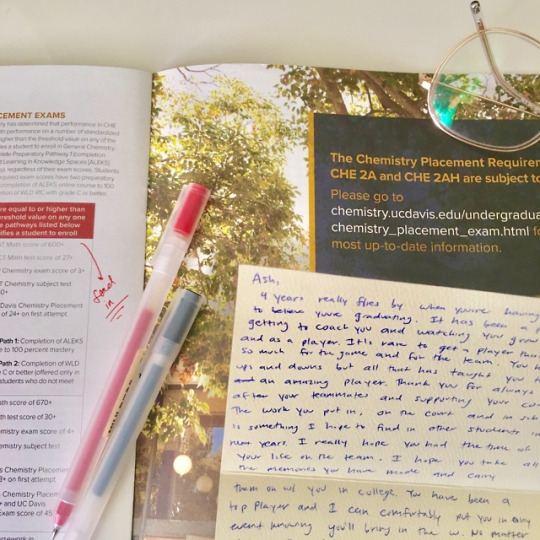 CEMENT EXAMS
ly has determined that performance in CHE
th performance on a number of standardized
igher than the threshold value on any of the
es a student to enroll in General Chemistry
Preparatory Pathway 1 (completion
t Learning in Knowledge Spaces [ALEKS]
regardless of their exam scores. Students
quired exam scores have two preparatory
completion of ALEKS online course to 100
etion of WLD 41C with grade C or better.
re equal to or higher than
reshold value on any one
e pathways listed below
ifies a student to enroll
T Math score of 600+
CT Math test score of 27+
P Chemistry exam score of 3+
T Chemistry subject test
00+
Davis Chemistry Placement
of 24+ on first attempt
Path 1: Completion of ALEKS
e to 100 percent mastery
Path 2: Completion of WLD
C or better (offered only in
students who do not meet
ath score of 670+
th test score of 30+
emistry exam score of 4+
emistry subject test
s Chemistry Placemen
3+ on first attempt
s Chemistry Placem
+ and UC Davis
Exam score of 45
Send
in
The Chemistry Placement Requirem
CHE 2A and CHE 2AH are subject to
Please go to
chemistry.ucdavis.edu/undergradua
chemistry_placement_exam.html fo
most up-to-date information.
Ash,
4 years really flies by when you're having
to believe you're graduating. It has been a p
getting to coach you and watching you grow
and as a player. It's rare to get a player that
so much for the game and for the team. You h
ups and downs but all that has taught you t
an amazing player. Thank you for always
after your teammates and supporting your co
The work you put in, on the court and in sch
is something I hope to find in other students in
next years. I really hope you had the time of
your life on the team. I hope you take all
the memories you have made and carry
them on w/ you in college. You have been a
top player and I can comfortably put you in any
event knowing you'll bring in the w. No matter